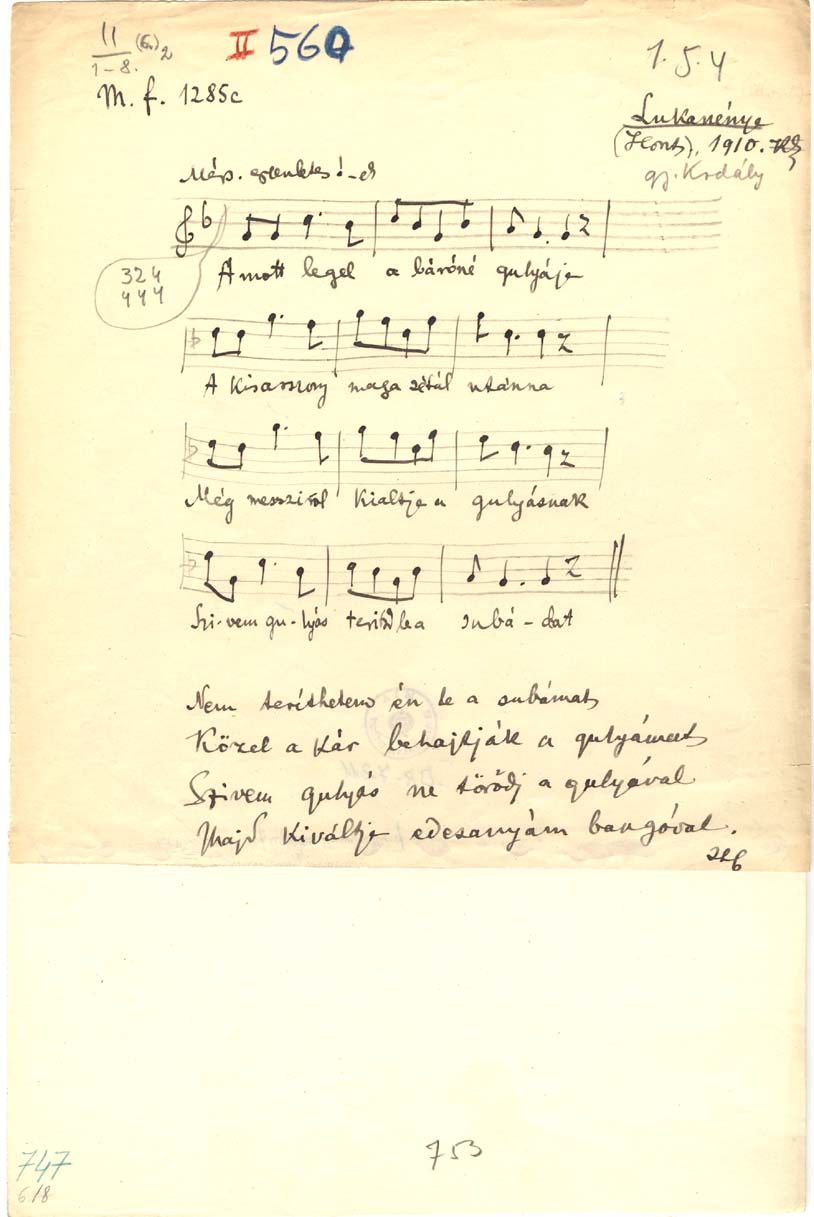 II (6.)2 II 560 1.5.4
1-8.
M. f. 1285c
Lukanénye
(Hont), 1910.
gj. Kodály
324
444
Amott legel a báróné gulyája
A Kisasszony maga sétál utánna
Még messziről Kiáltja a gulyásnak
Szi-vem gu-lyás terítsd le a subá-dat
Nem teríthetem én le a subámat
Közel a kár behajtják a gulyámat
Szívem gulyás ne törődj a gulyával
Majd kiváltja edesanyám bangóval.
747
6/8
753